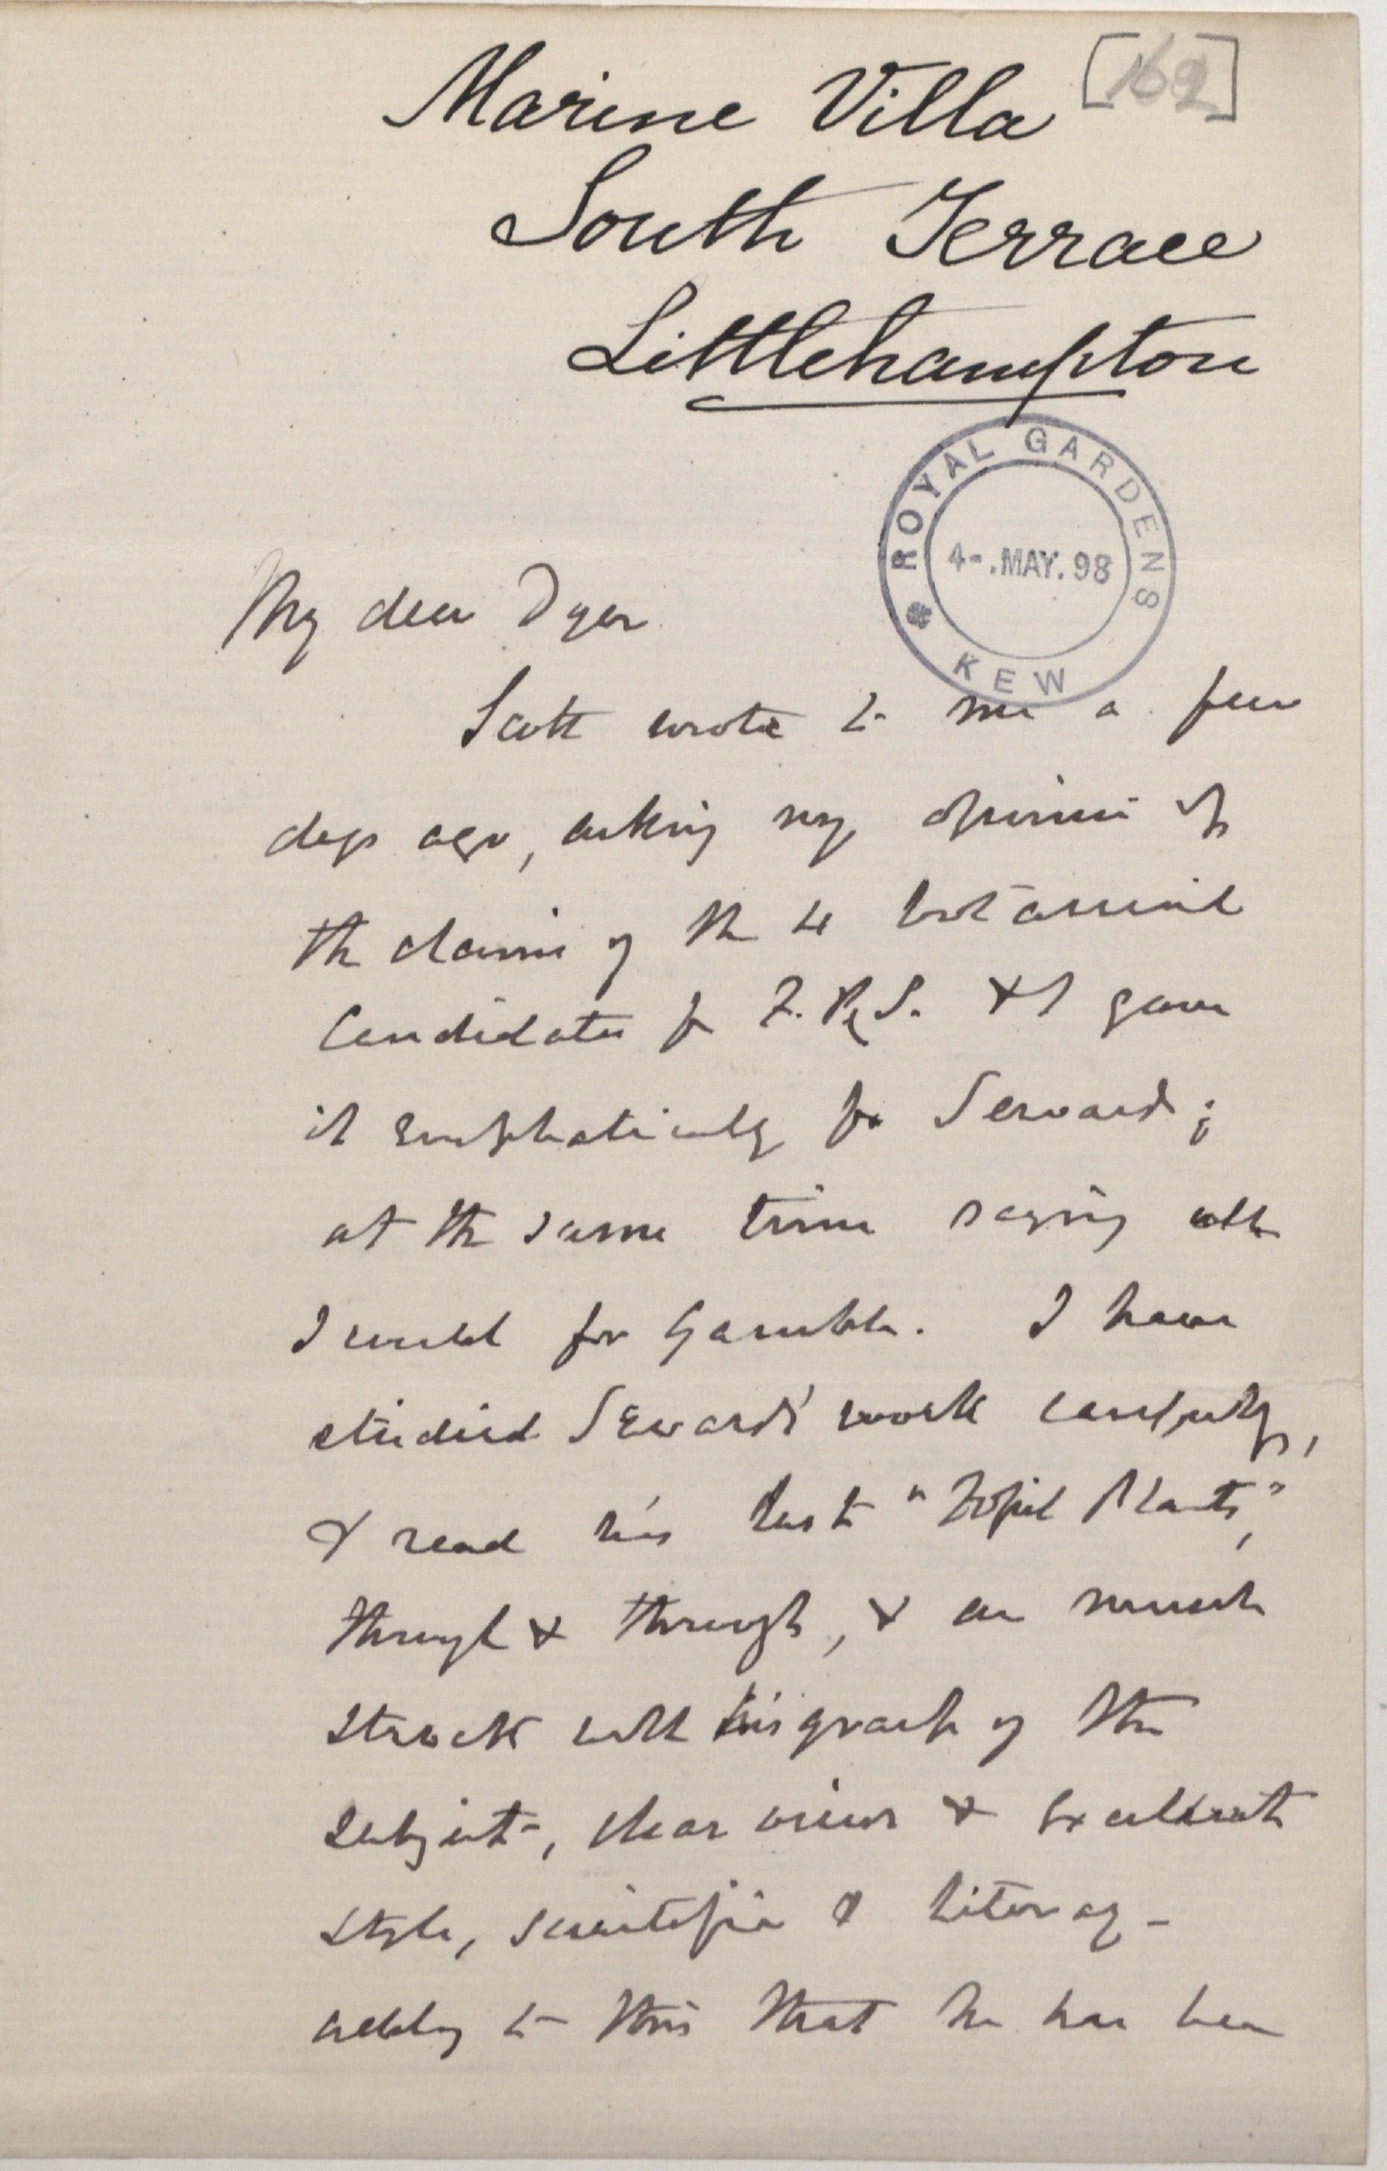 [162]
Marine Villa
South Terrace
Littlehampton
ROYAL GARDENS KEW
4-.MAY.98
My dear Dyer
Scott wrote to me a few
days ago, asking my opinion of
the claims of the 4 botanical
Candidates for F.R.S. & I gave
it emphatically for Seward;
at the same time saying all
I could for Gamble. I have
studied Seward's work carefully,
& read his last "Fossil Plants",
through & through, & am much
struck with his grasp of the
subject, clear views & excellent
style, scientific & literary -
adding to this that he has been